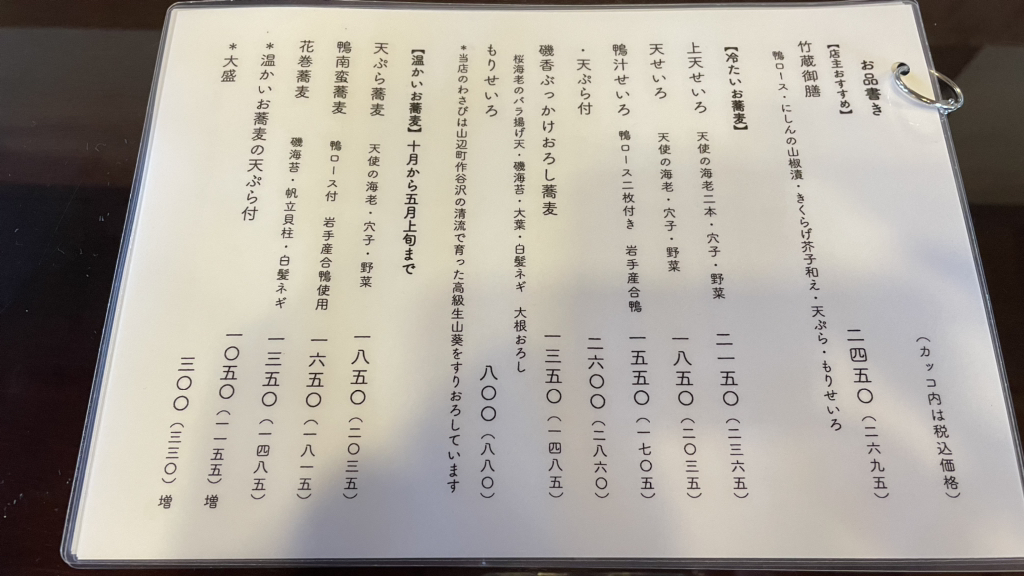 お品書き
（カッコ内は税込価格）
【店主おすすめ】
竹蔵御膳 二四五〇（二六九五）
鴨ロース・にしんの山椒漬・きくらげ芥子和え・天ぷら・もりせいろ
【冷たいお蕎麦】
上天せいろ 天使の海老二本・穴子・野菜 二一五〇（二三六五）
天せいろ 天使の海老・穴子・野菜 一八五〇（二〇三五）
鴨汁せいろ 鴨ロース二枚付き 岩手産合鴨 一五五〇（一七〇五）
・天ぷら付 二六〇〇（二八六〇）
磯香ぶっかけおろし蕎麦 一三五〇（一四八五）
桜海老のバラ揚げ天・磯海苔・大葉・白髪ネギ 大根おろし
もりせいろ 八〇〇（八八〇）
*当店のわさびは山辺町作谷沢の清流で育った高級生山葵をすりおろしています
【温かいお蕎麦】十月から五月上旬まで
天ぷら蕎麦 天使の海老・穴子・野菜 一八五〇（二〇三五）
鴨南蛮蕎麦 鴨ロース付 岩手産合鴨使用 一六五〇（一八一五）
花巻蕎麦 磯海苔・帆立貝柱・白髪ネギ 一三五〇（一四八五）
*温かいお蕎麦の天ぷら付 一〇五〇（一一五五）増
*大盛 三〇〇（三三〇）増